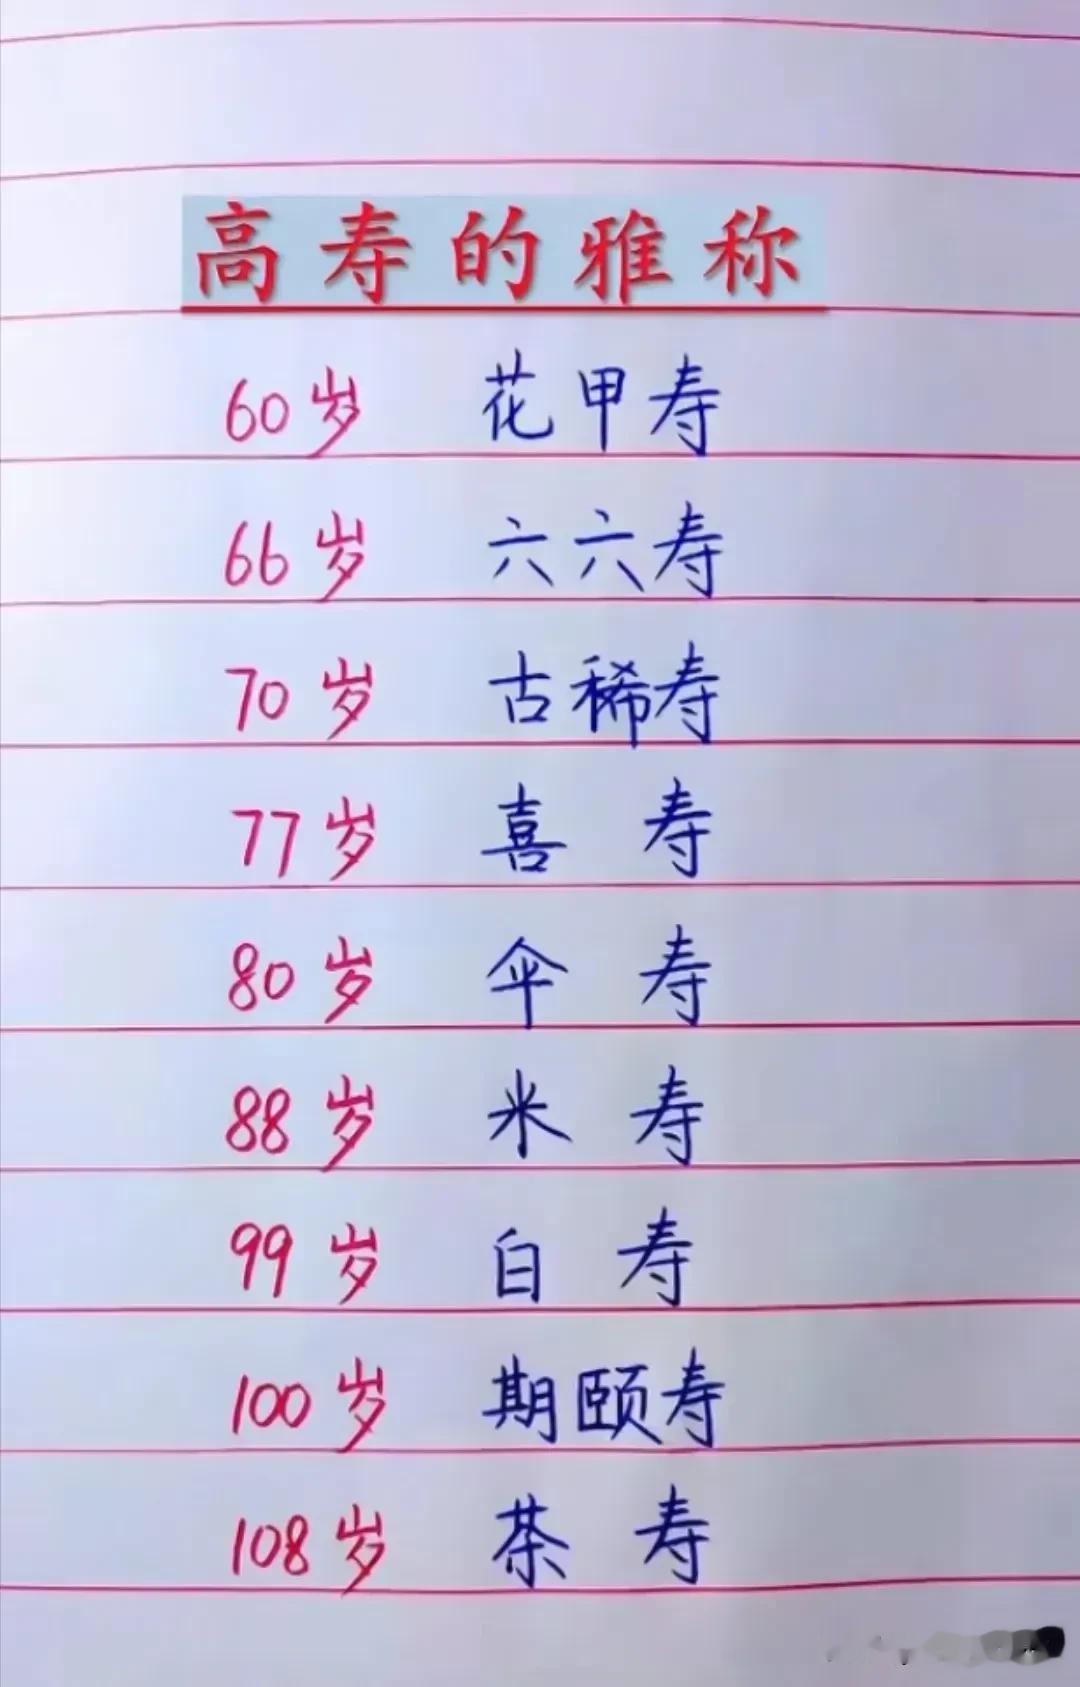 高寿的雅称
60岁 花甲寿
66岁 六六寿
70岁 古稀寿
77岁 喜寿
80岁 伞寿
88岁 米寿
99岁 白寿
100岁 期颐寿
108岁 茶寿